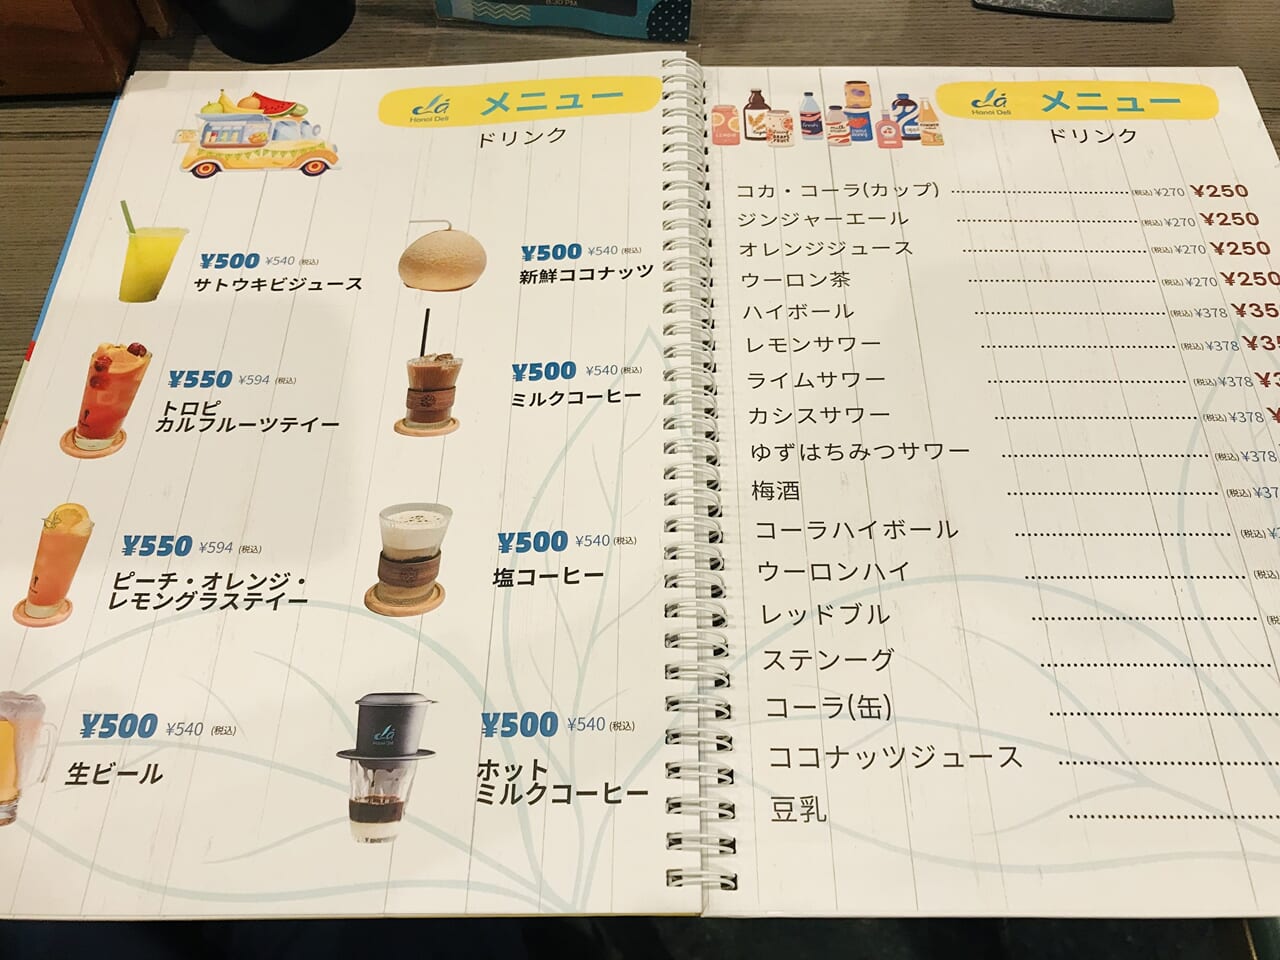 8:30 PM
Lá
Hanoi Deli
メニュー
ドリンク
¥500 ¥540 (税込)
サトウキビジュース
¥500 ¥540 (税込)
新鮮ココナッツ
¥550 ¥594 (税込)
トロピ
カルフルーツテイー
¥500 ¥540 (税込)
ミルクコーヒー
¥550 ¥594 (税込)
ピーチ・オレンジ・
レモングラステイー
¥500 ¥540 (税込)
塩コーヒー
¥500 ¥540 (税込)
生ビール
¥500 ¥540 (税込)
ホット
ミルクコーヒー
Lá
Hanoi Deli
メニュー
ドリンク
コカ・コーラ(カップ) (税込) ¥270 ¥250
ジンジャーエール (税込) ¥270 ¥250
オレンジジュース (税込) ¥270 ¥250
ウーロン茶 (税込) ¥270 ¥250
ハイボール (税込) ¥378
レモンサワー (税込) ¥378
ライムサワー (税込) ¥378
カシスサワー (税込) ¥378
ゆずはちみつサワー (税込) ¥378
梅酒 (税込)
コーラハイボール (税込)
ウーロンハイ
レッドブル
ステンーグ
コーラ(缶)
ココナッツジュース
豆乳